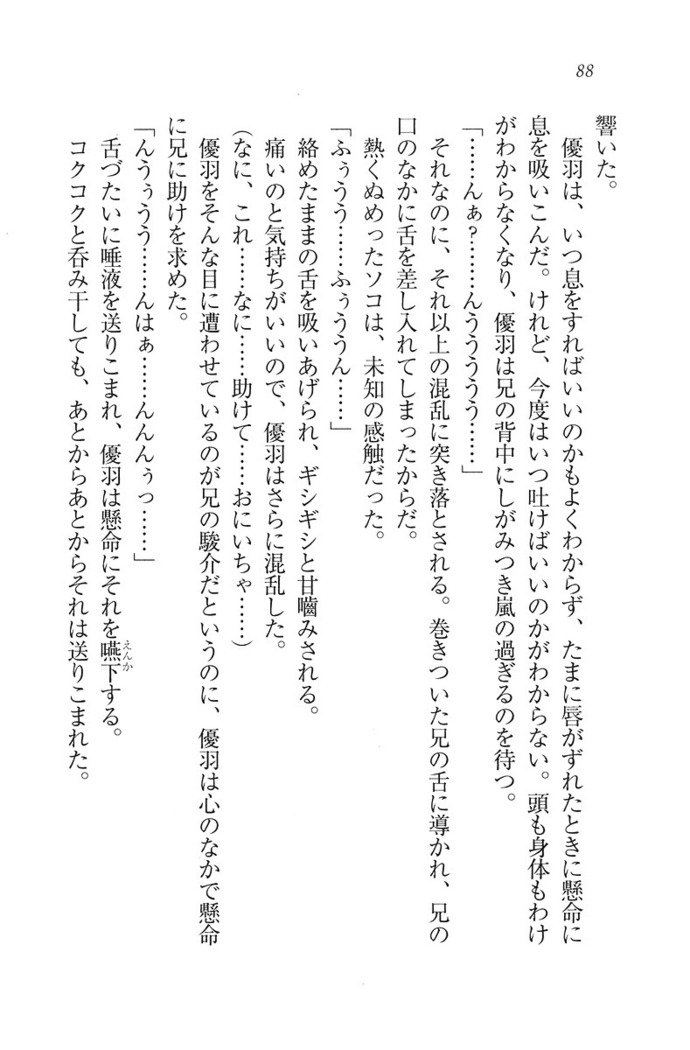 88
響いた。
　優羽は、いつ息をすればいいのかもよくわからず、たまに唇がずれたときに懸命に
息を吸いこんだ。けれど、今度はいつ吐けばいいのかがわからない。頭も身体もわけ
がわからなくなり、優羽は兄の背中にしがみつき嵐の過ぎるのを待つ。
「……んぁ？……んうううう……」
　それなのに、それ以上の混乱に突き落とされる。巻きついた兄の舌に導かれ、兄の
口のなかに舌を差し入れてしまったからだ。
　熱くぬめったソコは、未知の感触だった。
「ふぅうう……ふぅううん……」
　絡めたままの舌を吸いあげられ、ギシギシと甘嚙みされる。
　痛いのと気持ちがいいので、優羽はさらに混乱した。
（なに、これ……なに……助けて……おにいちゃ……）
　優羽をそんな目に遭わせているのが兄の駿介だというのに、優羽は心のなかで懸命
に兄に助けを求めた。
「んうぅうう……んはぁ……んんんぅっ……」
　舌づたいに唾液を送りこまれ、優羽は懸命にそれを嚥下えんかする。
　コクコクと呑み干しても、あとからあとからそれは送りこまれた。